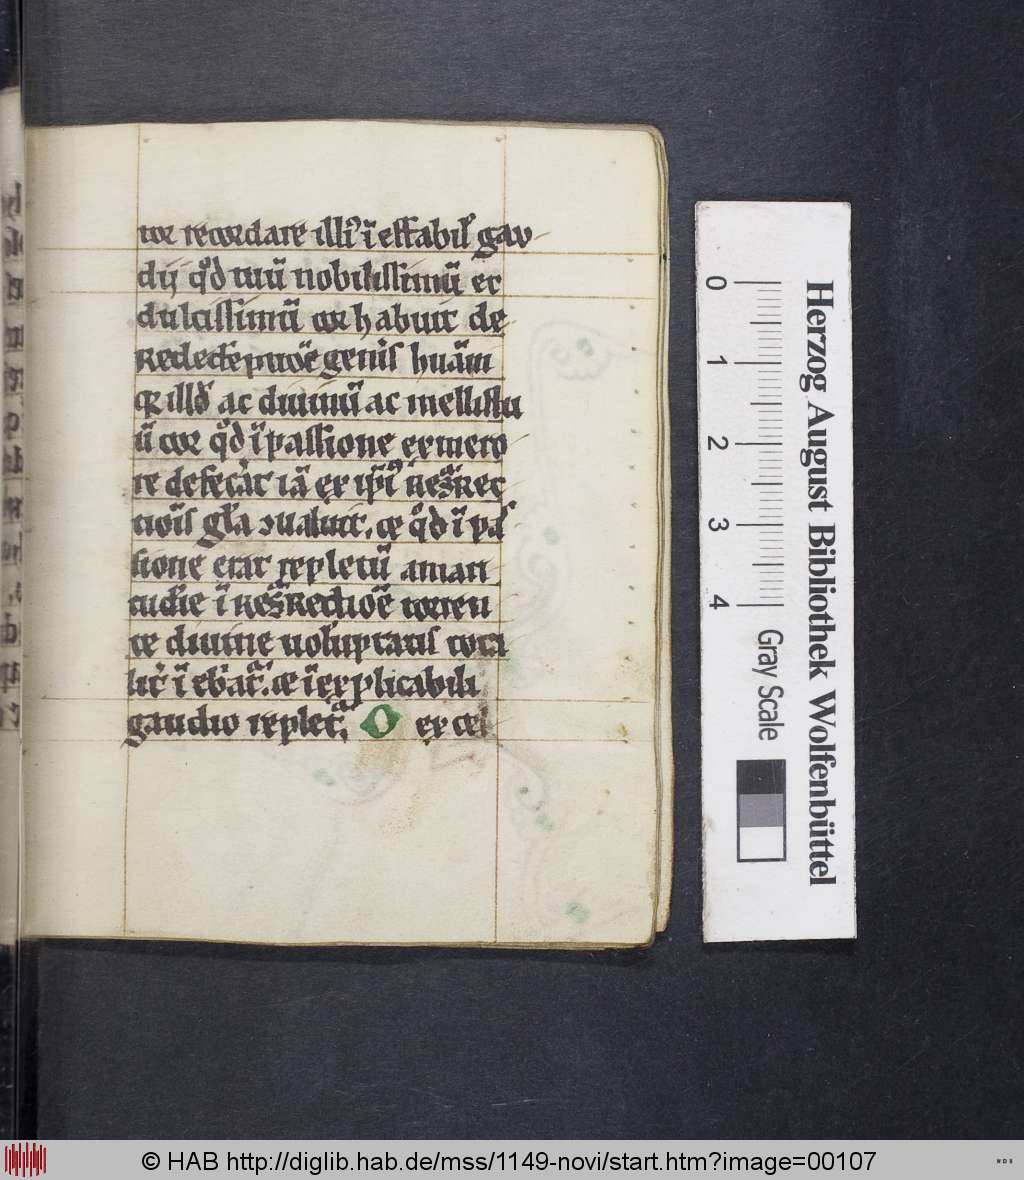 tor recordare illiꝰ ī effabil' gau
dij qd̓ tuū nobilissimū et
dulcissimū cor habuit de
Redēptōe genīs huām
qr illđ ac diuinū ac mellistu
ū cor qd̓ ī passione ex mero
re defecat̓ iā ex ip̄iꝰ Resr̄rec
tiōis gl̄a ↄualuit. et qd̓ ī pas
sione erat repletū aman
tudīe ī Resr̄rectiōe torren
te diuine uoluptatis tota
lit̓ ī ebat̓ᵃ. et ī explicabili
gaudio replet̓ᵃ. O excel
0 1 2 3 4
Gray Scale
Herzog August Bibliothek Wolfenbüttel
© HAB http://diglib.hab.de/mss/1149-novi/start.htm?image=00107